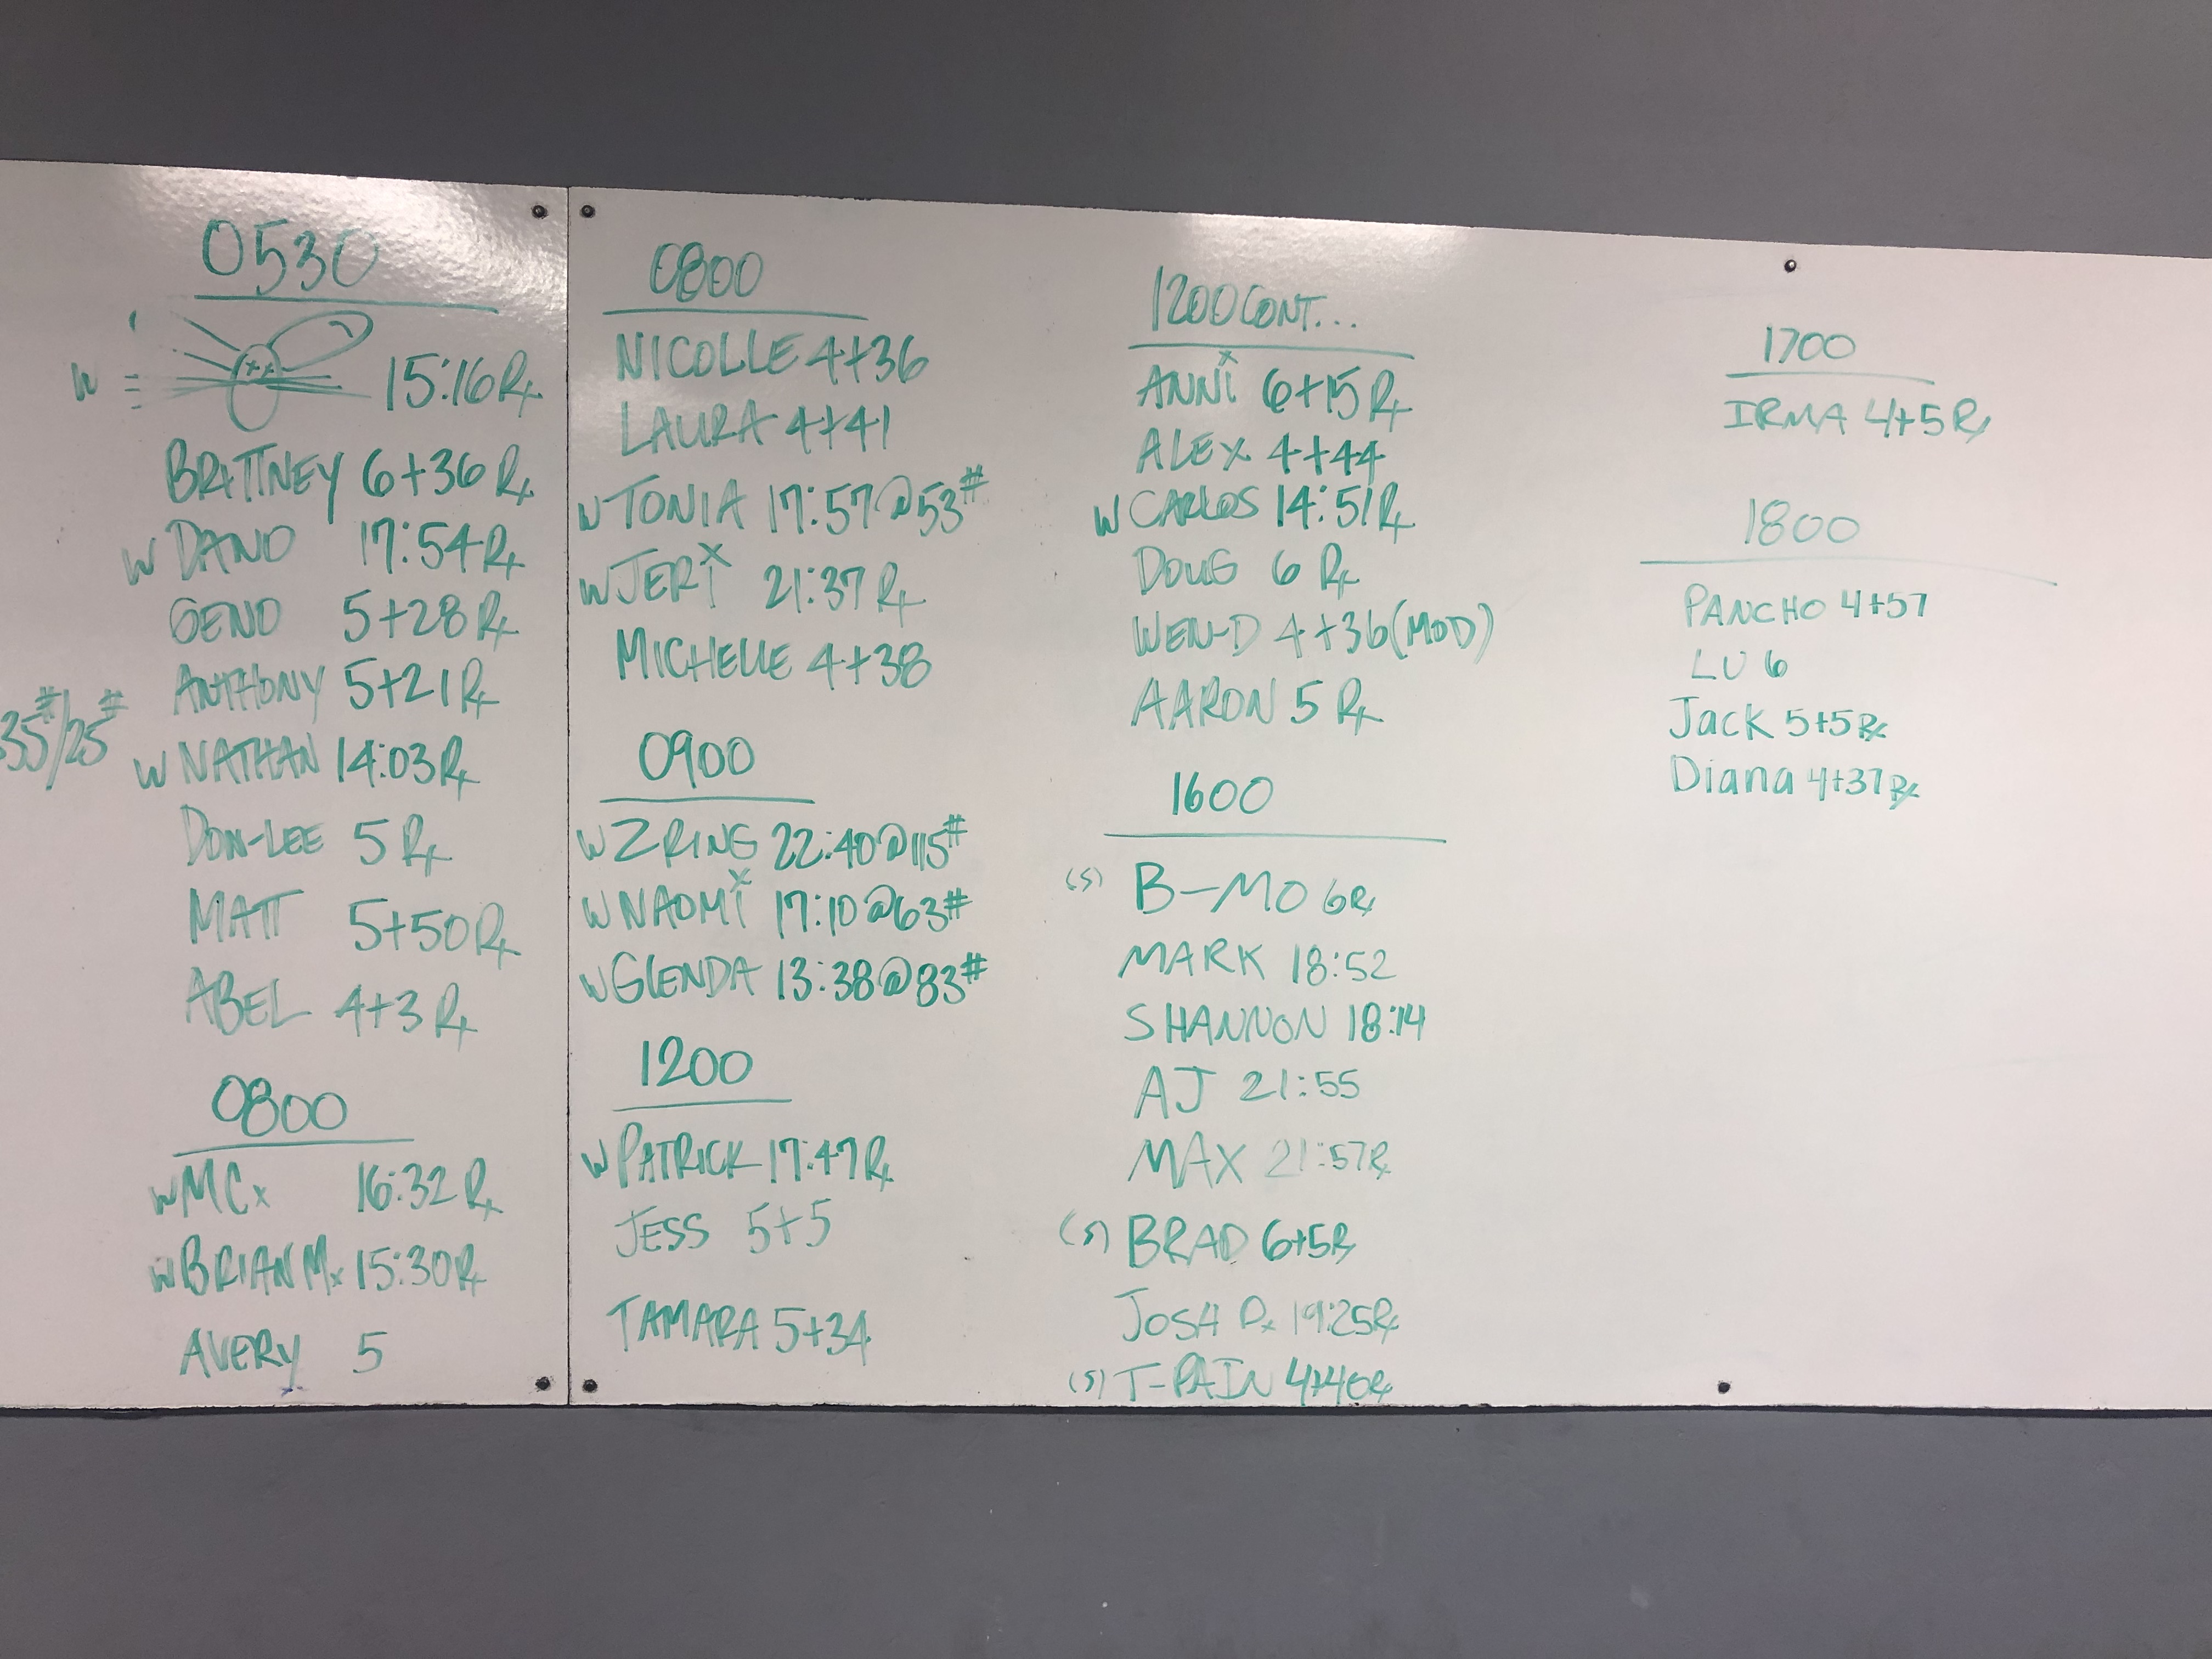 0530
W 15:16 Rx
BRITTNEY 6+36 Rx
W DANO 17:54 Rx
GENO 5+28 Rx
ANTHONY 5+21 Rx
35#/25#
W NATHAN 14:03 Rx
DON-LEE 5 Rx
MATT 5+50 Rx
ABEL 4+3 Rx
0800
W MCx 16:32 Rx
W BRIAN Mx 15:30 Rx
AVERY 5
0800
NICOLLE 4+36
LAURA 4+41
W TONIA 17:57@53#
W JERI 21:37 Rx
MICHELLE 4+38
0900
W ZRING 22:40@115#
W NAOMI 17:10@63#
W GLENDA 13:38@83#
1200
W PATRICK 17:47 Rx
JESS 5+5
TAMARA 5+34
1200 CONT...
ANNI 6+15 Rx
ALEX 4+44
W CARLOS 14:51 Rx
DOUG 6 Rx
WEN-D 4+36 (MOD)
AARON 5 Rx
1600
(S) B-MO 6 Rx
MARK 18:52
SHANNON 18:14
AJ 21:55
MAX 21:57 Rx
(S) BRAD 6+5 Rx
JOSH 19:25 Rx
(S) T-PAIN 4+40 Rx
1700
IRMA 4+5 Rx
1800
PANCHO 4+57
LU 6
Jack 5+5 Rx
Diana 4+37 Rx